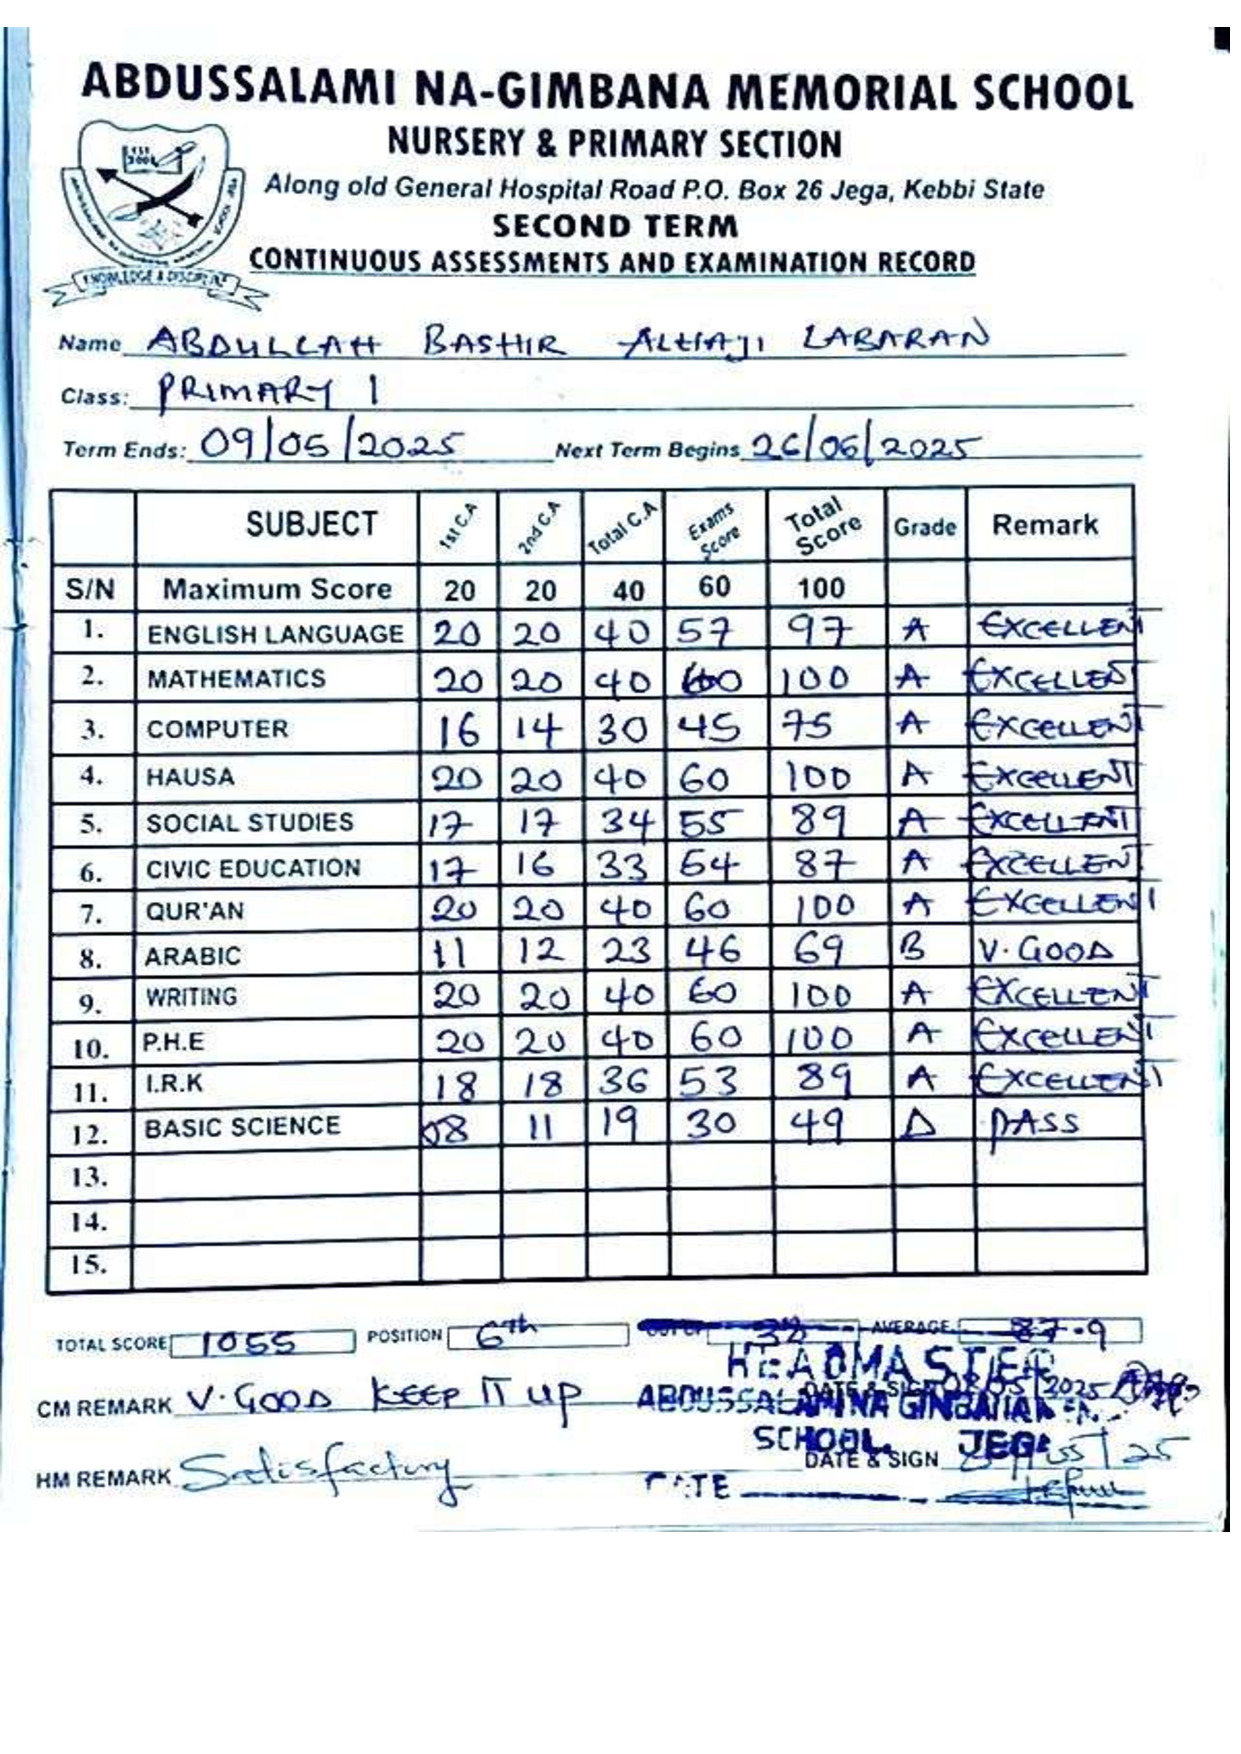 ABDUSSALAMI NA-GIMBANA MEMORIAL SCHOOL
NURSERY & PRIMARY SECTION
Along old General Hospital Road P.O. Box 26 Jega, Kebbi State
SECOND TERM
CONTINUOUS ASSESSMENTS AND EXAMINATION RECORD
KNOWLEDGE & DISCIPLINE
Name ABDULLAH BASHIR ALHAJI LABARAN
Class: PRIMARY 1
Term Ends: 09/05/2025 Next Term Begins 26/06/2025
SUBJECT 1st C.A 2nd C.A Total C.A Exams Score Total Score Grade Remark
S/N Maximum Score 20 20 40 60 100
1. ENGLISH LANGUAGE 20 20 40 57 97 A EXCELLENT
2. MATHEMATICS 20 20 40 60 100 A EXCELLENT
3. COMPUTER 16 14 30 45 75 A EXCELLENT
4. HAUSA 20 20 40 60 100 A EXCELLENT
5. SOCIAL STUDIES 17 17 34 55 89 A EXCELLENT
6. CIVIC EDUCATION 17 16 33 54 87 A EXCELLENT
7. QUR'AN 20 20 40 60 100 A EXCELLENT
8. ARABIC 11 12 23 46 69 B V.GOOD
9. WRITING 20 20 40 60 100 A EXCELLENT
10. P.H.E 20 20 40 60 100 A EXCELLENT
11. I.R.K 18 18 36 53 89 A EXCELLENT
12. BASIC SCIENCE 08 11 19 30 49 D PASS
13.
14.
15.
TOTAL SCORE 1055 POSITION 6th OUT OF 38 AVERAGE 87.9
HEADMASTER
CM REMARK V.GOOD KEEP IT UP DATE & SIGN 08/05/2025
ABDUSSALAMI NA GINBANA
SCHOOL JEGA
HM REMARK Satisfactory DATE & SIGN
DATE